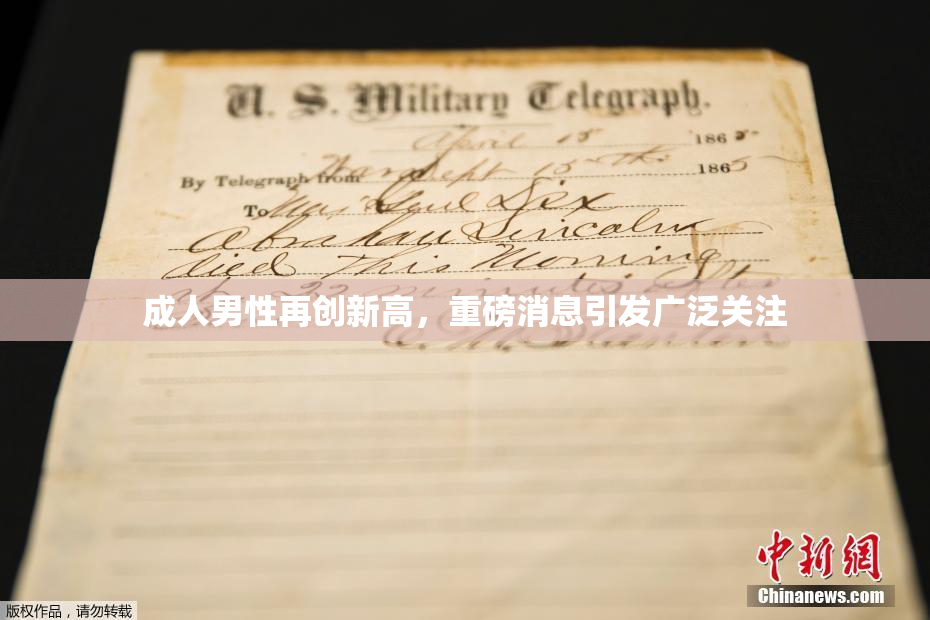 U. S. Military Telegraph.
April 15 1865
By Telegraph from War Dept 15th 1865
To Maj Genl Dix
Abraham Lincoln
died This Morning
at 22 minutes after
成人男性再创新高，重磅消息引发广泛关注
中新网
Chinanews.com
版权作品，请勿转载